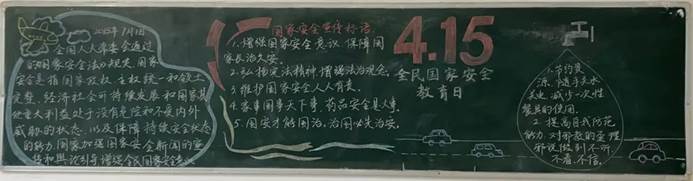 2015年7月1日
全国人大常委会通过
的《国家安全法》规定 国家
安全是指国家政权 主权 统一和领土
完整、经济社会可持续发展和国家其
他重大利益处于没有危险和不受内外
威胁的状态 以及保障持续安全状态
的能力 国家加强国家安全新闻的宣
传和舆论引导 增强全民国家安全意识
国家安全宣传标语
1.增强国家安全意识 保障国
家长治久安。
2.弘扬宪法精神 增强法治观念。
3.维护国家安全人人有责。
4.家事国事天下事 药品安全是大事。
5.国安才能国治,治国必先治安。
4.15
全民国家安全
教育日
1.节约资
源、随手关水
关电 减少一次性
餐具的使用
2.提高自我防范
能力 对邪教的歪理
邪说做到不听
不看、不信。